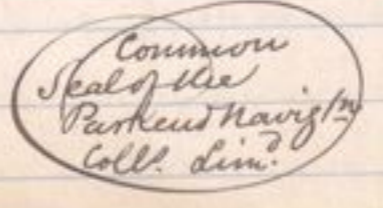 Common
Seal of the
Parkend Navigtn
Colls. Limd.